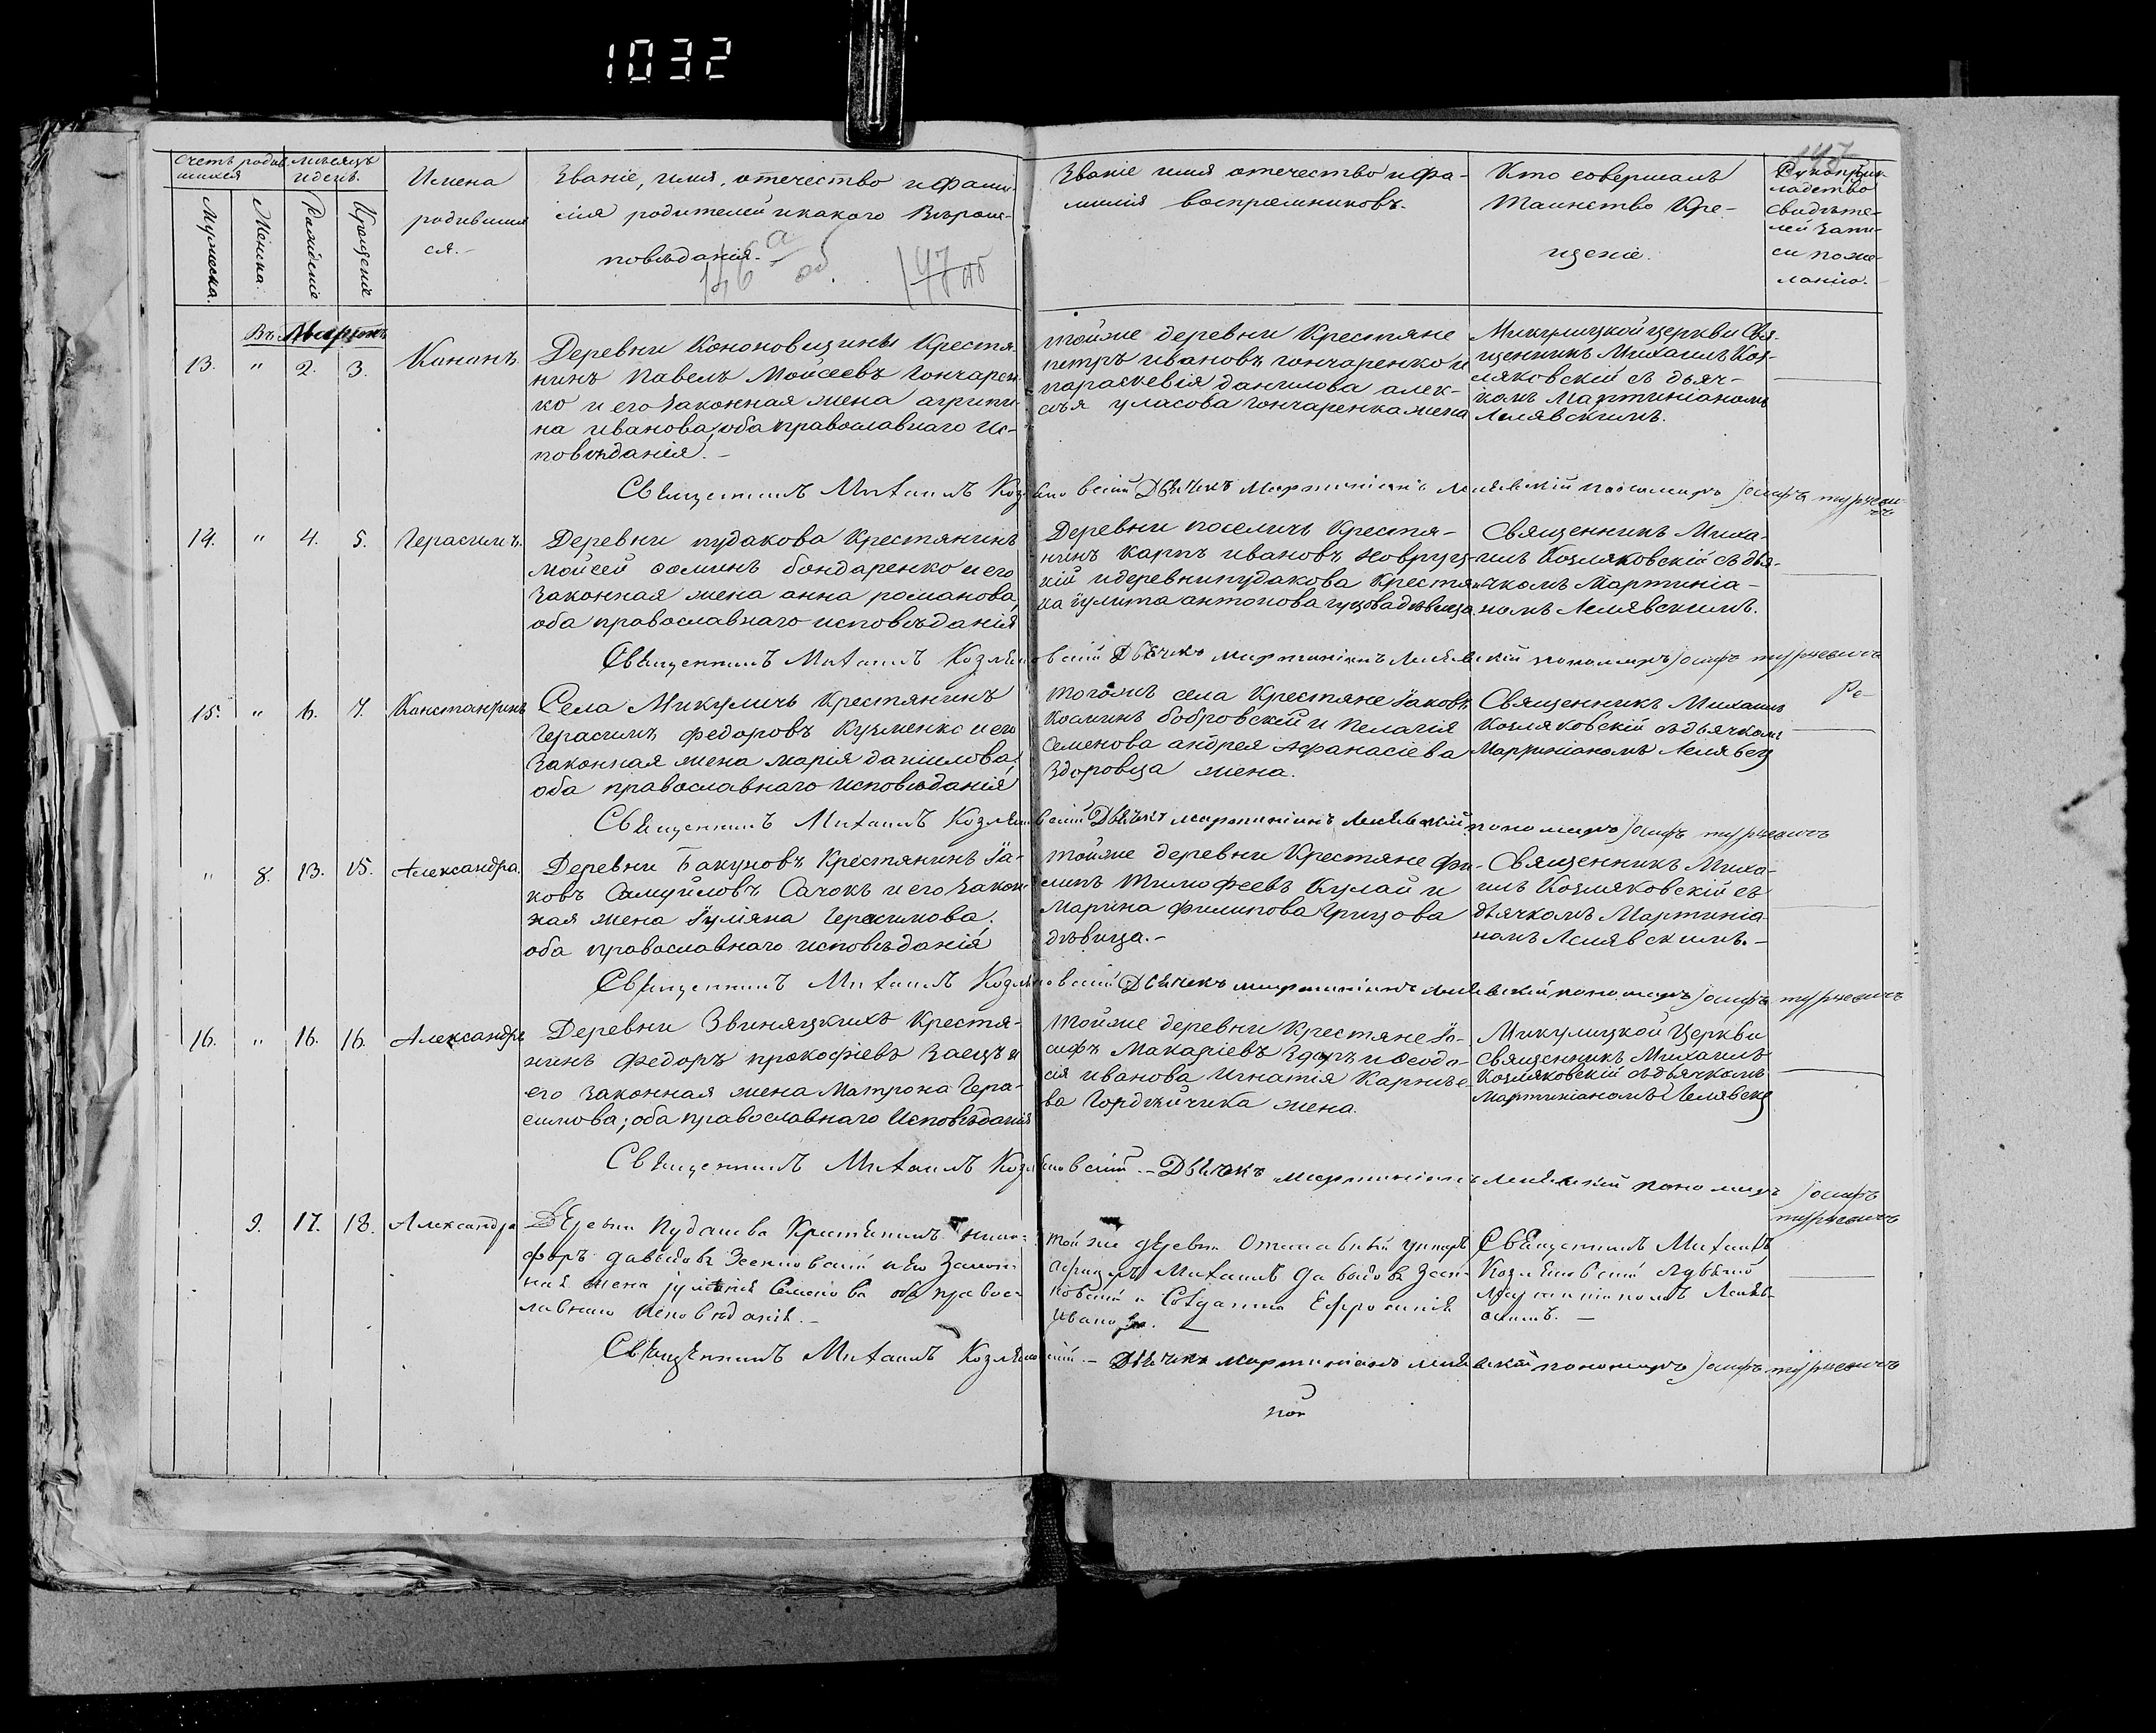 1032
147
Счетъ родив
шихся
Мѣсяцъ
и день.
Мужеска.
Женска.
Рожденіе
Крещеніе
Имена
родивших
ся.-
Званіе, имя, отечество и фами-
лія родителей и какого Вѣроис-
повѣданія.-
146 а об.
147 об
Званіе имя отечество и фа-
милія воспріемниковъ.
Кто совершалъ
Таинство Кре-
щеніе.
Рукоприк
ладство
свидѣте-
лей запи-
си по же-
ланію.
Въ Мартѣ
13. " 2. 3. Кананъ.
Деревни Кононовщины Крестя-
нинъ Павелъ Мойсеевъ Гончарен-
ко и его законная жена агрипи-
на иванова, оба православнаго Ис-
повѣданія.-
тойже деревни Крестяне
петръ ивановъ гончаренко и
параскевія данилова алек-
сѣя уласова гончаренка жена
Микулицкой церкви Свя-
щенникъ Михаилъ Коз-
ляковскій съ дьяч-
комъ Мартиніаномъ
Лелявскимъ.
Священникъ Михаилъ Козляковскій Дьячекъ Мартиніанъ Лелявскій пономарь Іосифъ турцеви-
чъ
14. " 4. 5. Герасимъ.
Деревни пудакова Крестянинъ
мойсей фоминъ бондаренко и его
законная жена анна романова,
оба православнаго исповѣданія
Деревни поселичь Крестя-
нинъ карпъ ивановъ новруц-
кій и деревни пудакова Крестян
ка іулита антонова гуцова дѣвица
Священникъ Миха-
илъ Козляковскій съ дья-
чкомъ Мартиніа-
номъ Лелявскимъ.
Священникъ Михаилъ Козляковскій Дьячекъ мартиніанъ Лелявскій пономарь Іосифъ турцевичъ
15. " 6. 7. Константинъ
Села Микуличь Крестянинъ
Герасимъ федоровъ Кузменко и его
законная жена марія данилова,
оба православнаго исповѣданія
тогожъ села Крестяне Іаковъ
Косминъ бобровскій и пелагія
семенова андрея Афанасіева
здоровца жена.
Священникъ Михаилъ
Козляковскій съ дьячкомъ
Мартиніаномъ Лелявск
Ре-
Священникъ Михаилъ Козляковскій Дьячекъ мартиніанъ Лелявскій пономарь Іосифъ турцевичъ
" 8. 13. 15. Александра.
Деревни Бакумовъ Крестянинъ Іа-
ковъ Самуйловъ Сачокъ и его закон
ная жена Іуліяна Герасимова,
оба православнаго исповѣданія
тойже деревни Крестяне фи-
липъ тимофеевъ Кулай и
Марина филипова Грицова
дѣвица.-
Священникъ Миха-
илъ Козляковскій съ
дьячкомъ Мартиніа
номъ Лелявскимъ.-
Священникъ Михаилъ Козляковскій Дьячекъ мартиніанъ Лелявскій пономарь Іосифъ турцевичъ
16. " 16. 16. Александръ
Деревни Звиняцкихъ Крестя-
нинъ Федоръ прокофіевъ Заецъ и
его законная жена Матрона Гера-
симова; оба православнаго Исповѣданія
тойже деревни Крестяне Іо-
сифъ Макаріевъ и Феодо-
сія иванова Игнатія Карнѣе-
ва Гордѣйчика жена.
Микулицкой Церкви
Священникъ Михаилъ
Козляковскій съ дьячкомъ
Мартиніаномъ Лелявск
Священникъ Михаилъ Козляковскій.- Дьячекъ мартиніанъ Лелявскій пономарь Іосифъ
турцевичъ
9. 17. 18. Александра
Деревни Пудакова Крестянинъ ники-
форъ давыдовъ Зенковскій и его Закон-
ная жена Іуліанія Семенова оба правос-
лавнаго исповѣданія.-
той же деревни Отставный унтеръ
Офицеръ Михаилъ Давыдовъ Зен-
ковскій и Солдатка Ефросинія
Иванова.
Священникъ Михаилъ
Козляковскій дьячко
Мартиніаномъ Леляв-
скимъ.-
Священникъ Михаилъ Козляковскій.- Дьячекъ мартиніанъ Лелявскій пономарь Іосифъ турцевичъ